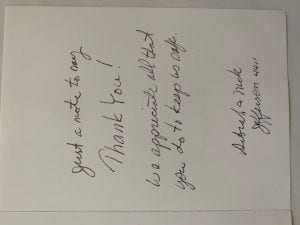 Just a note to say
Thank You!
We appreciate all that
you do to keep us safe.
Deborah & Nick
Jefferson